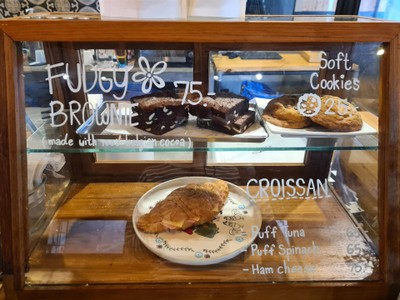 FUDGY
BROWNIE
75.
(made with
cocoa)
Soft
Cookies
25
CROISSAN
Puff Tuna
- Puff Spinach 65
- Ham cheese 75